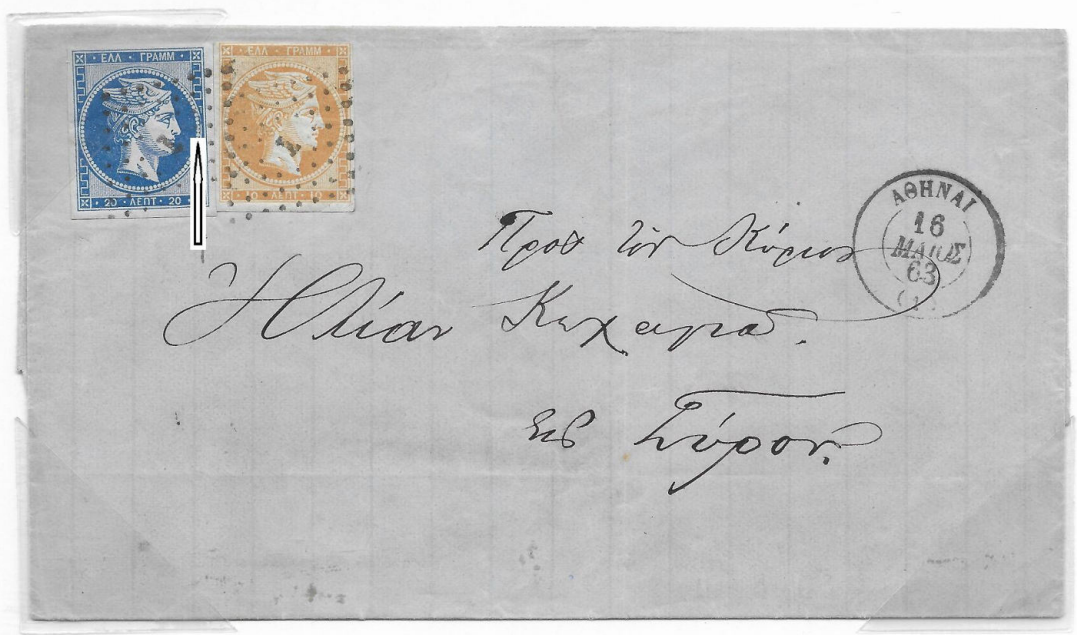 ΕΛΛ ΓΡΑΜΜ
20 ΛΕΠΤ 20
ΕΛΛ ΓΡΑΜΜ
10 ΛΕΠΤ 10
ΑΘΗΝΑΙ
16
ΜΑΙΟΣ
63
(1)
Προς τον Κύριον
Ηλίαν Κεχαγιαν.
εις Σύρον.